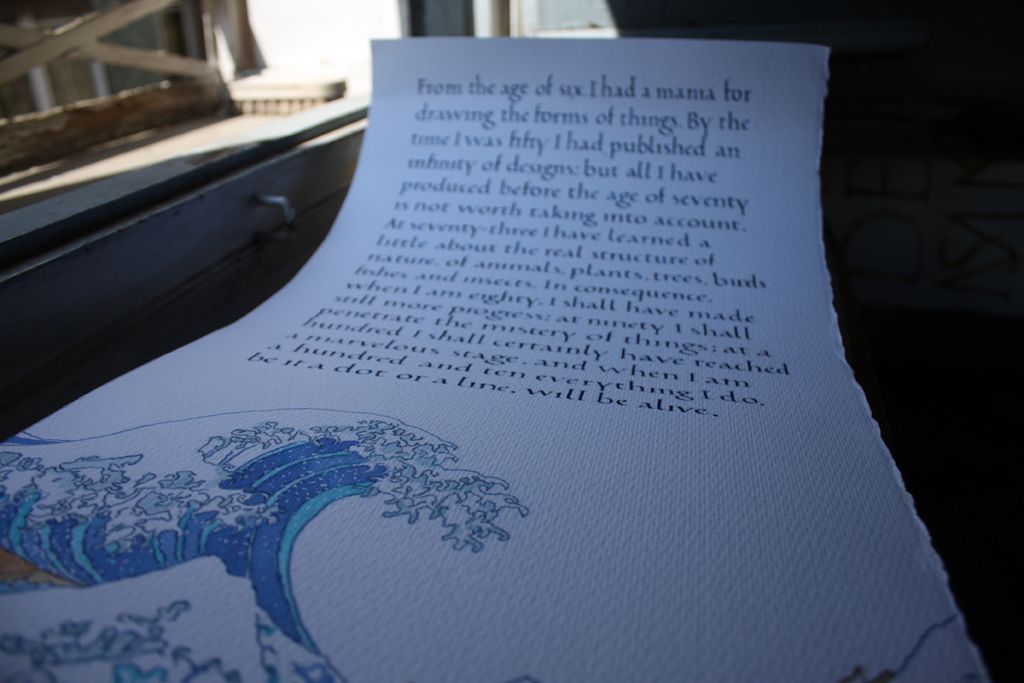 From the age of six I had a mania for
drawing the forms of things. By the
time I was fifty I had published an
infinity of designs; but all I have
produced before the age of seventy
is not worth taking into account.
At seventy-three I have learned a
little about the real structure of
nature, of animals, plants, trees, birds
fishes and insects. In consequence,
when I am eighty, I shall have made
still more progress; at ninety I shall
penetrate the mistery of things; at a
hundred I shall certainly have reached
a marvelous stage, and when I am
a hundred and ten everything I do,
be it a dot or a line, will be alive.